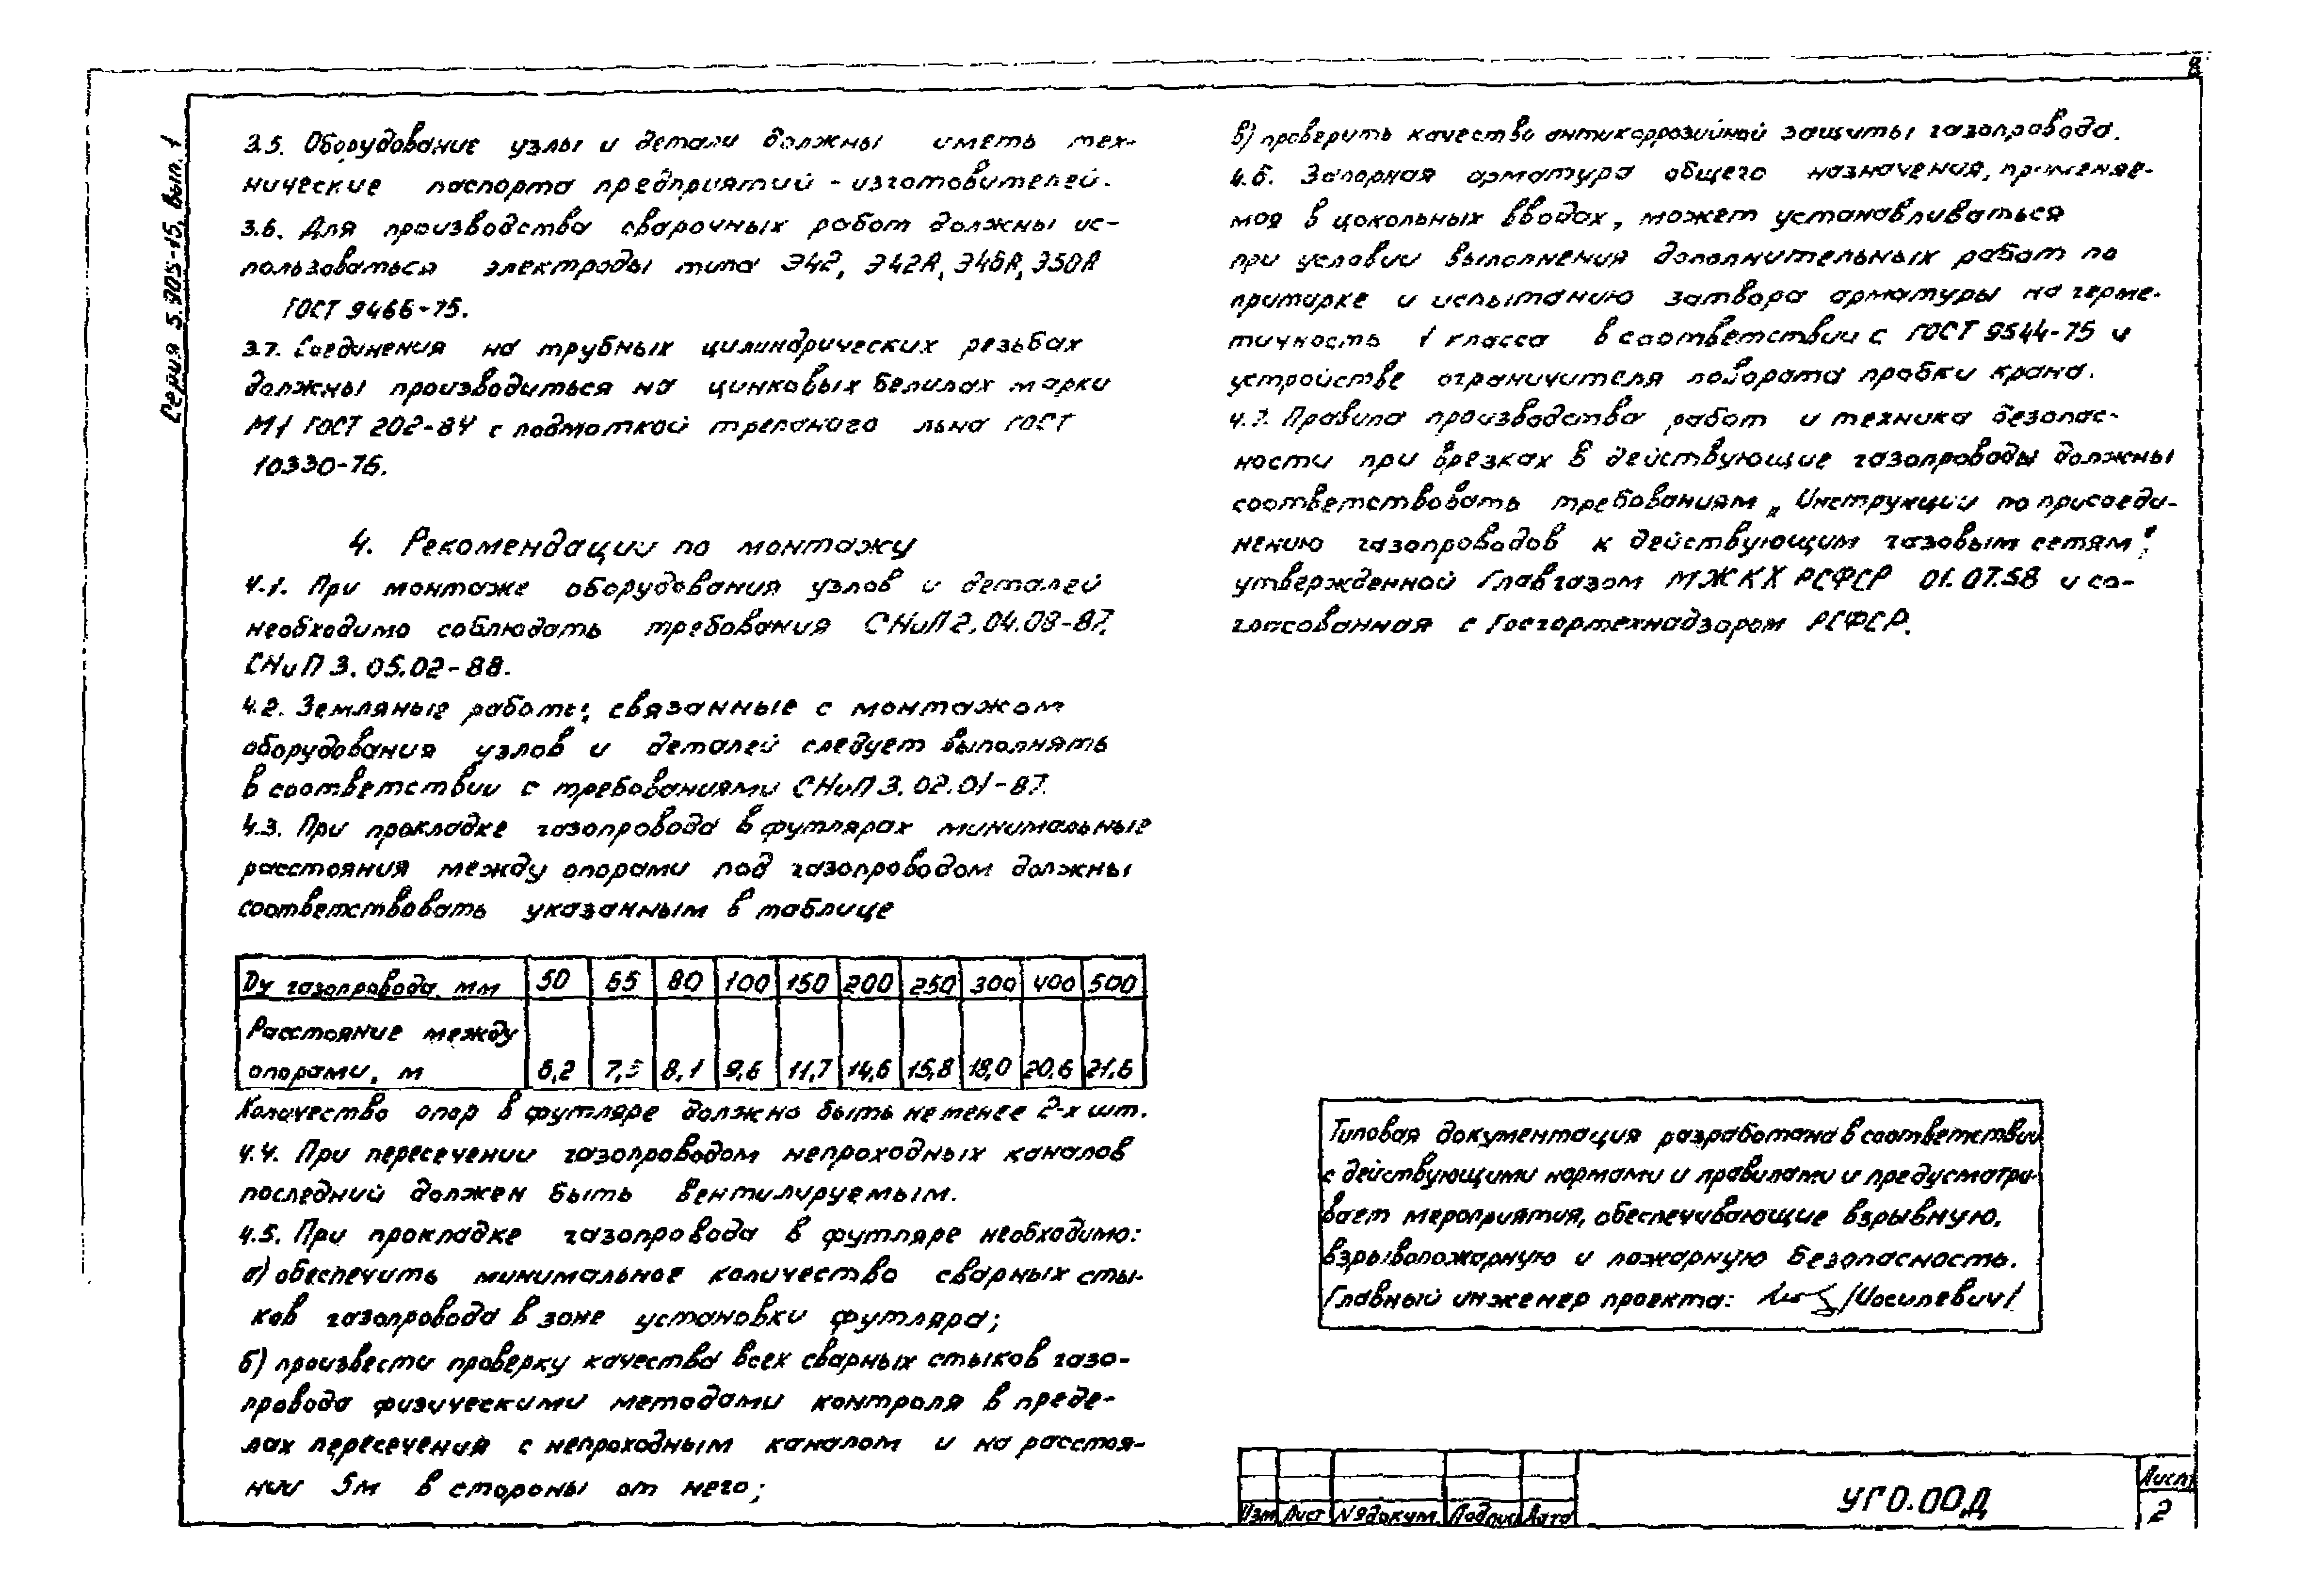 8
Серия 5.905-15, вып. 1
3.5. Оборудование узлы и детали должны иметь тех-
нические паспорта предприятий - изготовителей.
3.6. Для производства сварочных работ должны ис-
пользоваться электроды типа Э42, Э42А, Э46А, Э50А
ГОСТ 9466-75.
3.7. Соединения на трубных цилиндрических резьбах
должны производиться на цинковых белилах марки
М1 ГОСТ 202-84 с подмоткой трепаного льна ГОСТ
10330-76.
4. Рекомендации по монтажу
4.1. При монтаже оборудования узлов и деталей
необходимо соблюдать требования СНиП 2.04.08-87,
СНиП 3.05.02-88.
4.2. Земляные работы, связанные с монтажом
оборудования узлов и деталей следует выполнять
в соответствии с требованиями СНиП 3.02.01-87.
4.3. При прокладке газопровода в футлярах минимальные
расстояния между опорами под газопроводом должны
соответствовать указанным в таблице
Dу газопровода, мм 50 65 80 100 150 200 250 300 400 500
Расстояние между
опорами, м 6,2 8,1 9,6 11,7 14,6 15,8 18,0 20,6 21,6
Количество опор в футляре должно быть не менее 2-х шт.
4.4. При пересечении газопроводом непроходных каналов
последний должен быть вентилируемым.
4.5. При прокладке газопровода в футляре необходимо:
а) обеспечить минимальное количество сварных сты-
ков газопровода в зоне установки футляра;
б) произвести проверку качества всех сварных стыков газо-
провода физическими методами контроля в преде-
лах пересечения с непроходным каналом и на расстоя-
нии 5м в стороны от него;
в) проверить качество антикоррозийной защиты газопровода.
4.6. Запорная арматура общего назначения, применяе-
мая в цокольных вводах, может устанавливаться
при условии выполнения дополнительных работ по
притирке и испытанию затвора арматуры на герме-
тичность 1 класса в соответствии с ГОСТ 9544-75 и
устройстве ограничителя поворота пробки крана.
4.7. Правила производства работ и техника безопас-
ности при врезках в действующие газопроводы должны
соответствовать требованиям „Инструкции по присоеди-
нению газопроводов к действующим газовым сетям",
утвержденной Главгазом МЖКХ РСФСР 01.07.58 и со-
гласованная с Госгортехнадзором РСФСР.
Типовая документация разработана в соответствии
с действующими нормами и правилами и предусматри-
вает мероприятия, обеспечивающие взрывную,
взрывопожарную и пожарную безопасность.
Главный инженер проекта: /Иосилевич/
Изм Лист № докум. Подпись Дата
УГ0.00Д
Лист
2